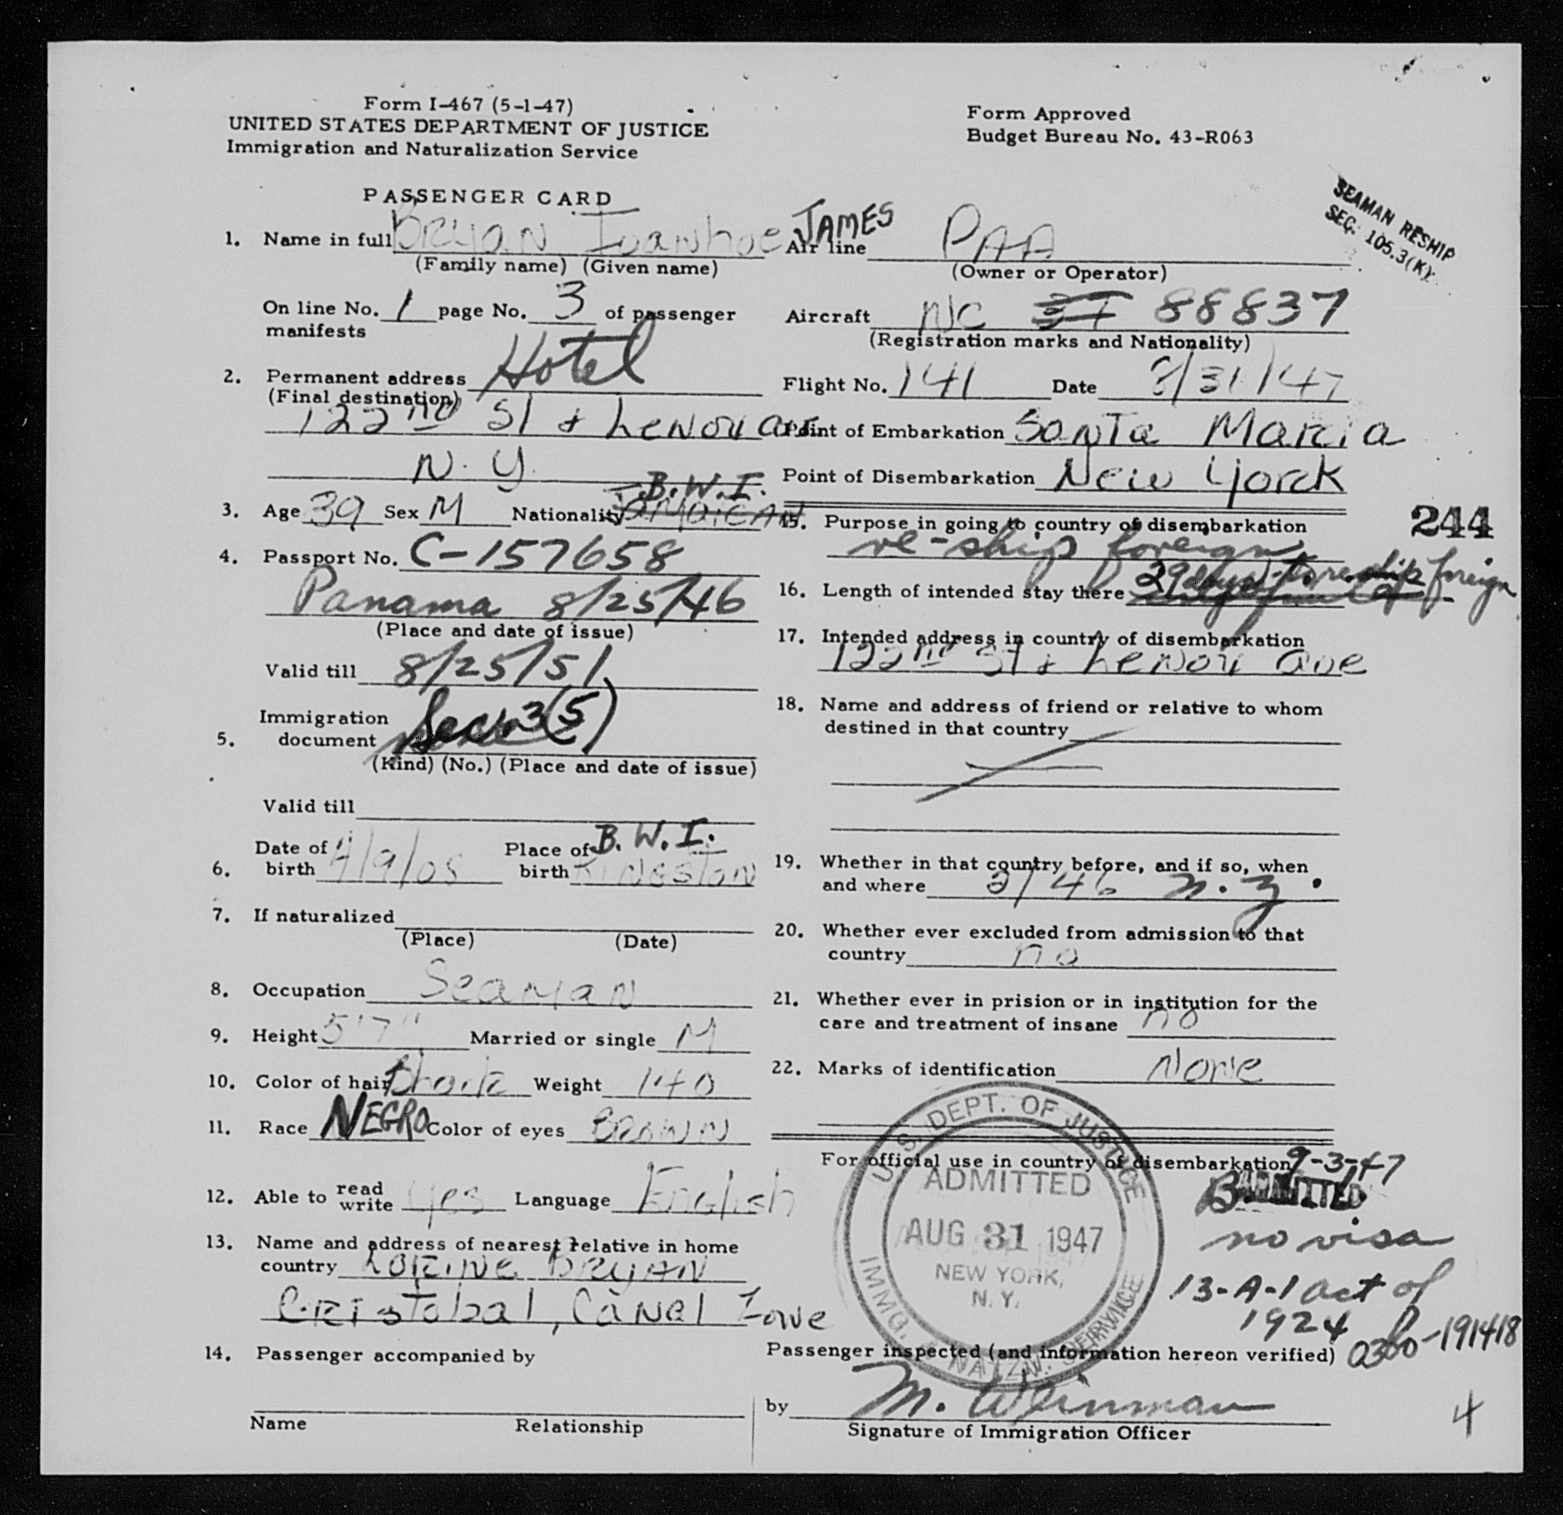 Form I-467 (5-1-47)
UNITED STATES DEPARTMENT OF JUSTICE
Immigration and Naturalization Service
Form Approved
Budget Bureau No. 43-R063
PASSENGER CARD
SEAMAN RESHIP
SEC. 105.3(K)
1. Name in full Bryan Ivanhoe JAMES
(Family name) (Given name)
On line No. 1 page No. 3 of passenger
manifests
2. Permanent address Hotel
(Final destination)
122nd St & Lenox ave
N.Y.
3. Age 39 Sex M Nationality B.W.I. Jamaican
4. Passport No. C-157658
Panama 8/25/46
(Place and date of issue)
Valid till 8/25/51
5. Immigration
document Sec 3(5)
(Kind) (No.) (Place and date of issue)
Valid till
6. Date of
birth 4/9/08 Place of
birth B.W.I. Kingston
7. If naturalized
(Place) (Date)
8. Occupation Seaman
9. Height 5'7" Married or single M
10. Color of hair Black Weight 140
11. Race NEGRO Color of eyes Brown
12. Able to read
write Yes Language English
13. Name and address of nearest relative in home
country Lorine Bryan
Cristobal, Canal Zone
14. Passenger accompanied by
Name Relationship
Air line PAA
(Owner or Operator)
Aircraft NC 88837
(Registration marks and Nationality)
Flight No. 141 Date 8/31/47
Point of Embarkation Santa Maria
Point of Disembarkation New York
244
15. Purpose in going to country of disembarkation
re-ship foreign
16. Length of intended stay there 29 days to reship foreign
17. Intended address in country of disembarkation
122nd St & Lenox ave
18. Name and address of friend or relative to whom
destined in that country
19. Whether in that country before, and if so, when
and where 2/46 N.Y.
20. Whether ever excluded from admission to that
country no
21. Whether ever in prision or in institution for the
care and treatment of insane no
22. Marks of identification None
For official use in country of disembarkation 9-3-47
U.S. DEPT. OF JUSTICE
ADMITTED
AUG 31 1947
NEW YORK,
N.Y.
IMMG. & NATZN. SERVICE
no visa
13-A-1 act of
1924
0300-191418
Passenger inspected (and information hereon verified)
by M. Weinman
Signature of Immigration Officer
4